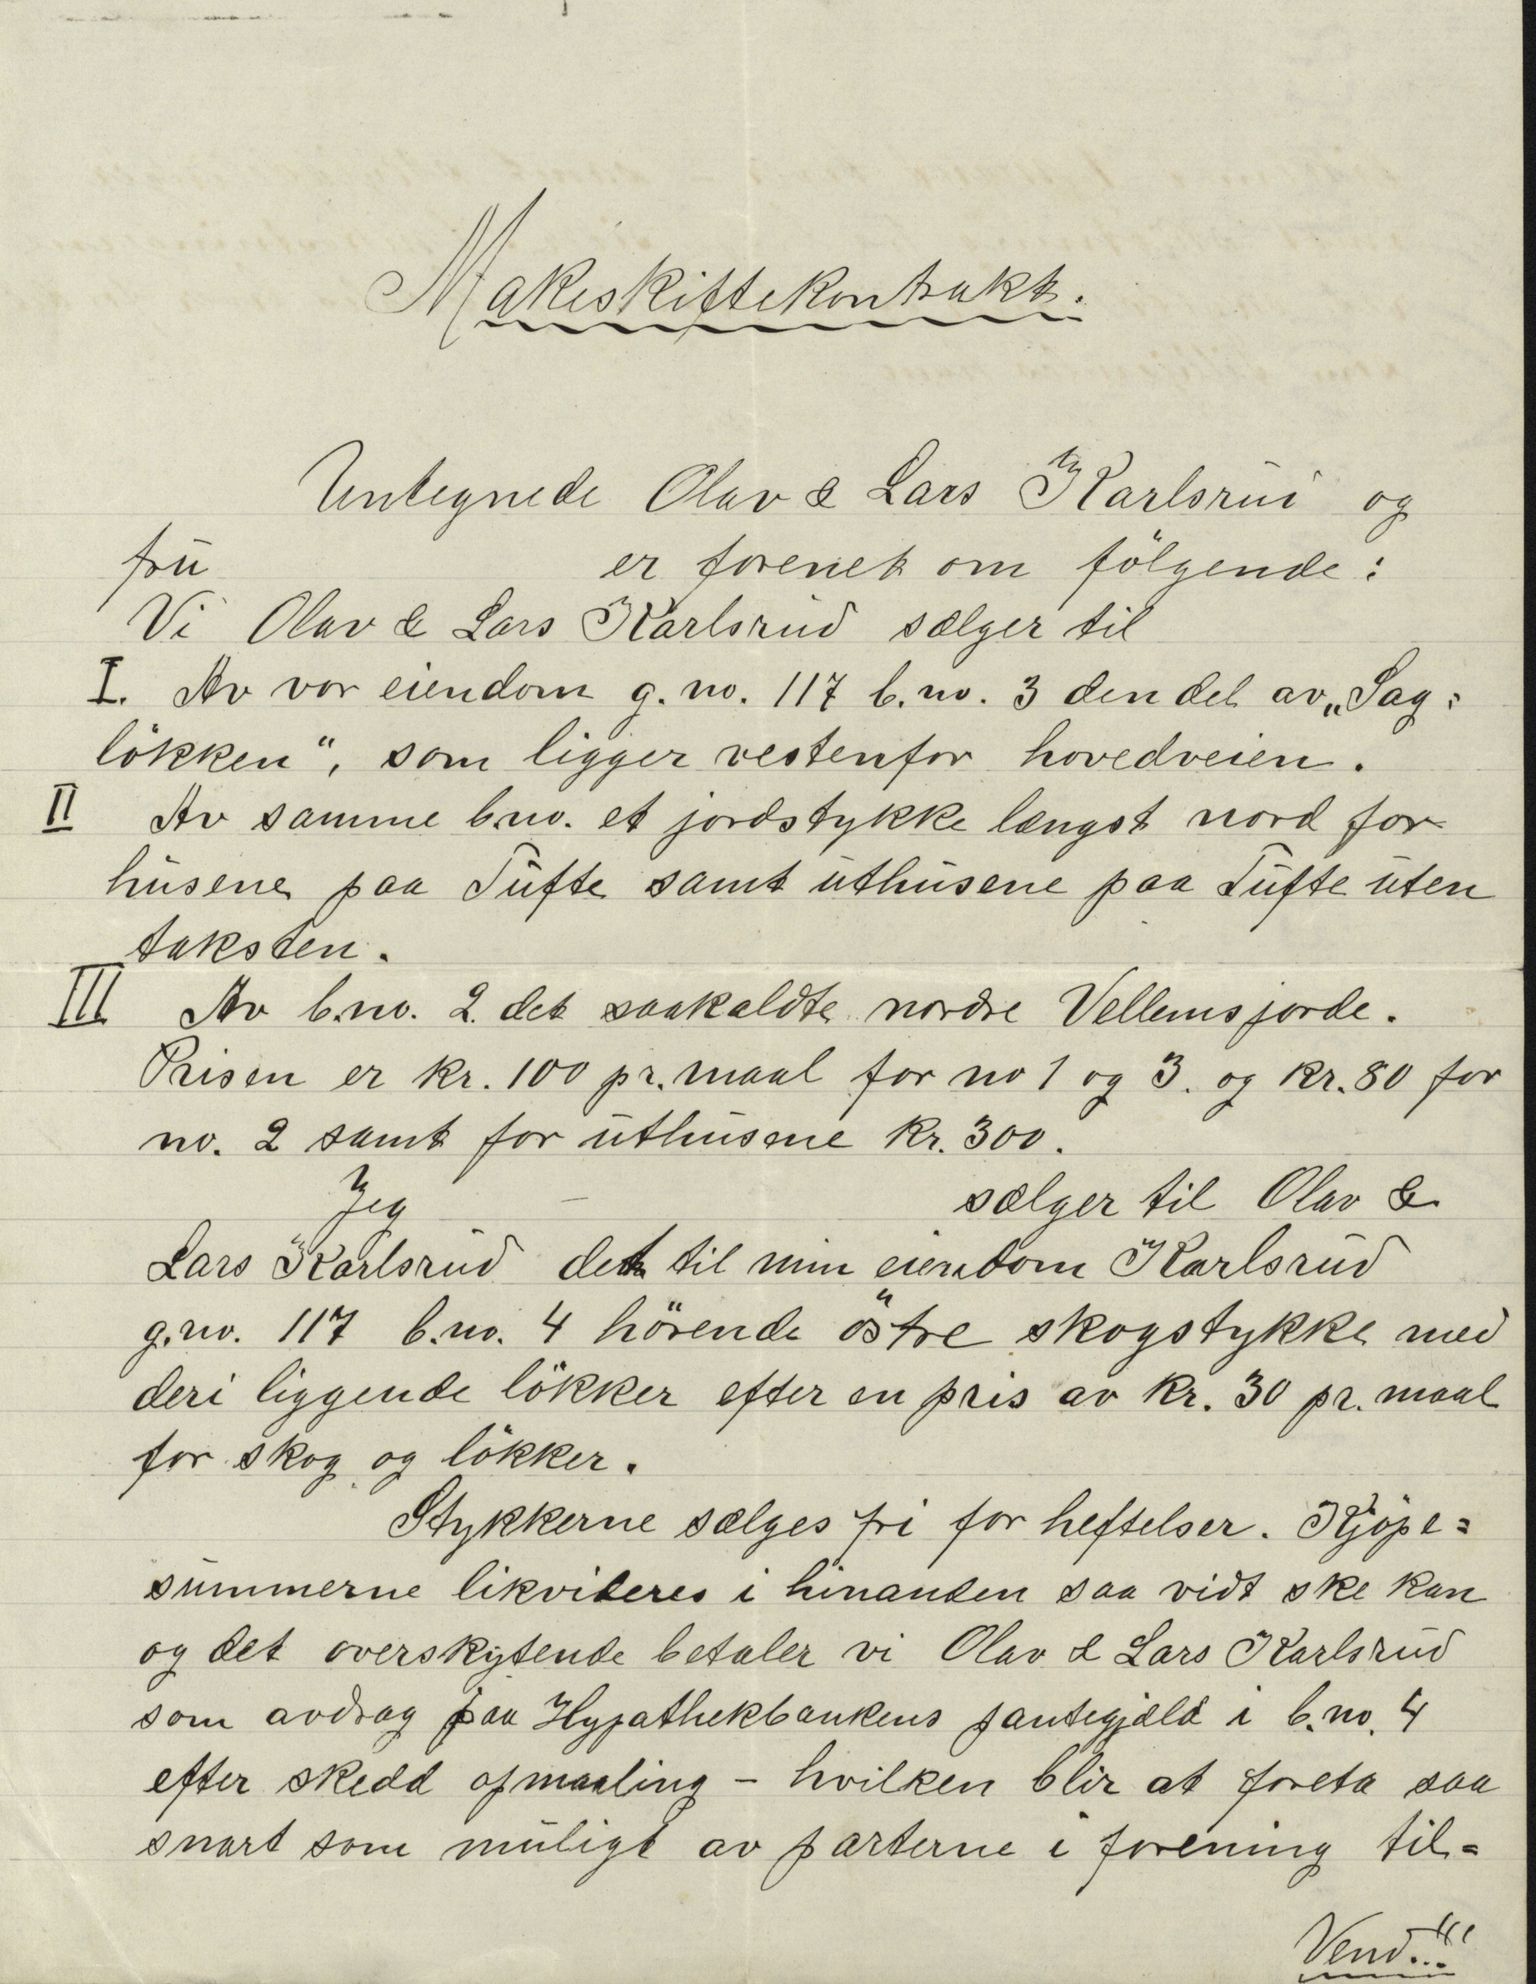 Makeskiftekontrakt.
Untegnede Olav & Lars Karlsrud og
fru er forenet om fölgende:
Vi Olav & Lars Karlsrud sælger til
I. Av vor eiendom g.no. 117 b.no. 3 den del av „Sag=
lökken“, som ligger vestenfor hovedveien.
II Av samme b.no. et jordstykke længst nord for
husene paa Tufte samt uthusene paa Tufte uten
taksten.
III Av b.no. 2. det saakaldte nordre Vellemsjorde.
Prisen er kr. 100 pr. maal for no 1 og 3. og kr. 80 for
no. 2 samt for uthusene kr. 300.
Jeg sælger til Olav &
Lars Karlsrud det til min eiendom Karlsrud
g.no. 117 b.no. 4 hörende östre skogstykke med
deri liggende lökker efter en pris av kr. 30 pr. maal
for skog og lökker.
Stykkerne sælges fri for heftelser. Kjöpe=
summerne likvideres i hinanden saa vidt ske kan
og det overskytende betaler vi Olav & Lars Karlsrud
som avdrag paa Hypathekbankens pantegjæld i b.no. 4
efter skedd opmaaling – hvilken blir at foreta saa
snart som muligt av parterne i forening til=
Vend..!!!